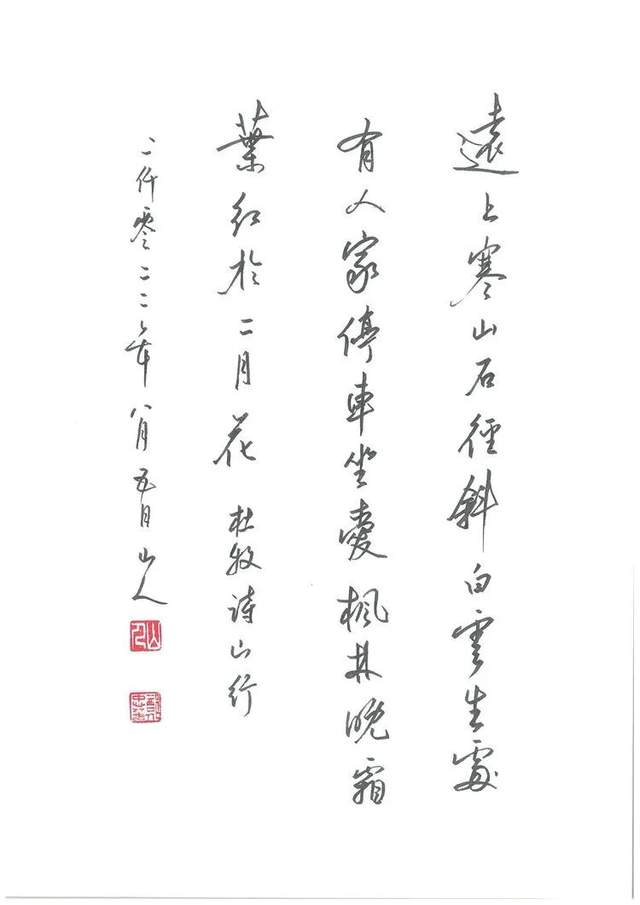 遠上寒山石徑斜白雲生處
有人家停車坐愛楓林晚霜
葉紅於二月花 杜牧詩山行
二仟零二二年八月五日山人
山人